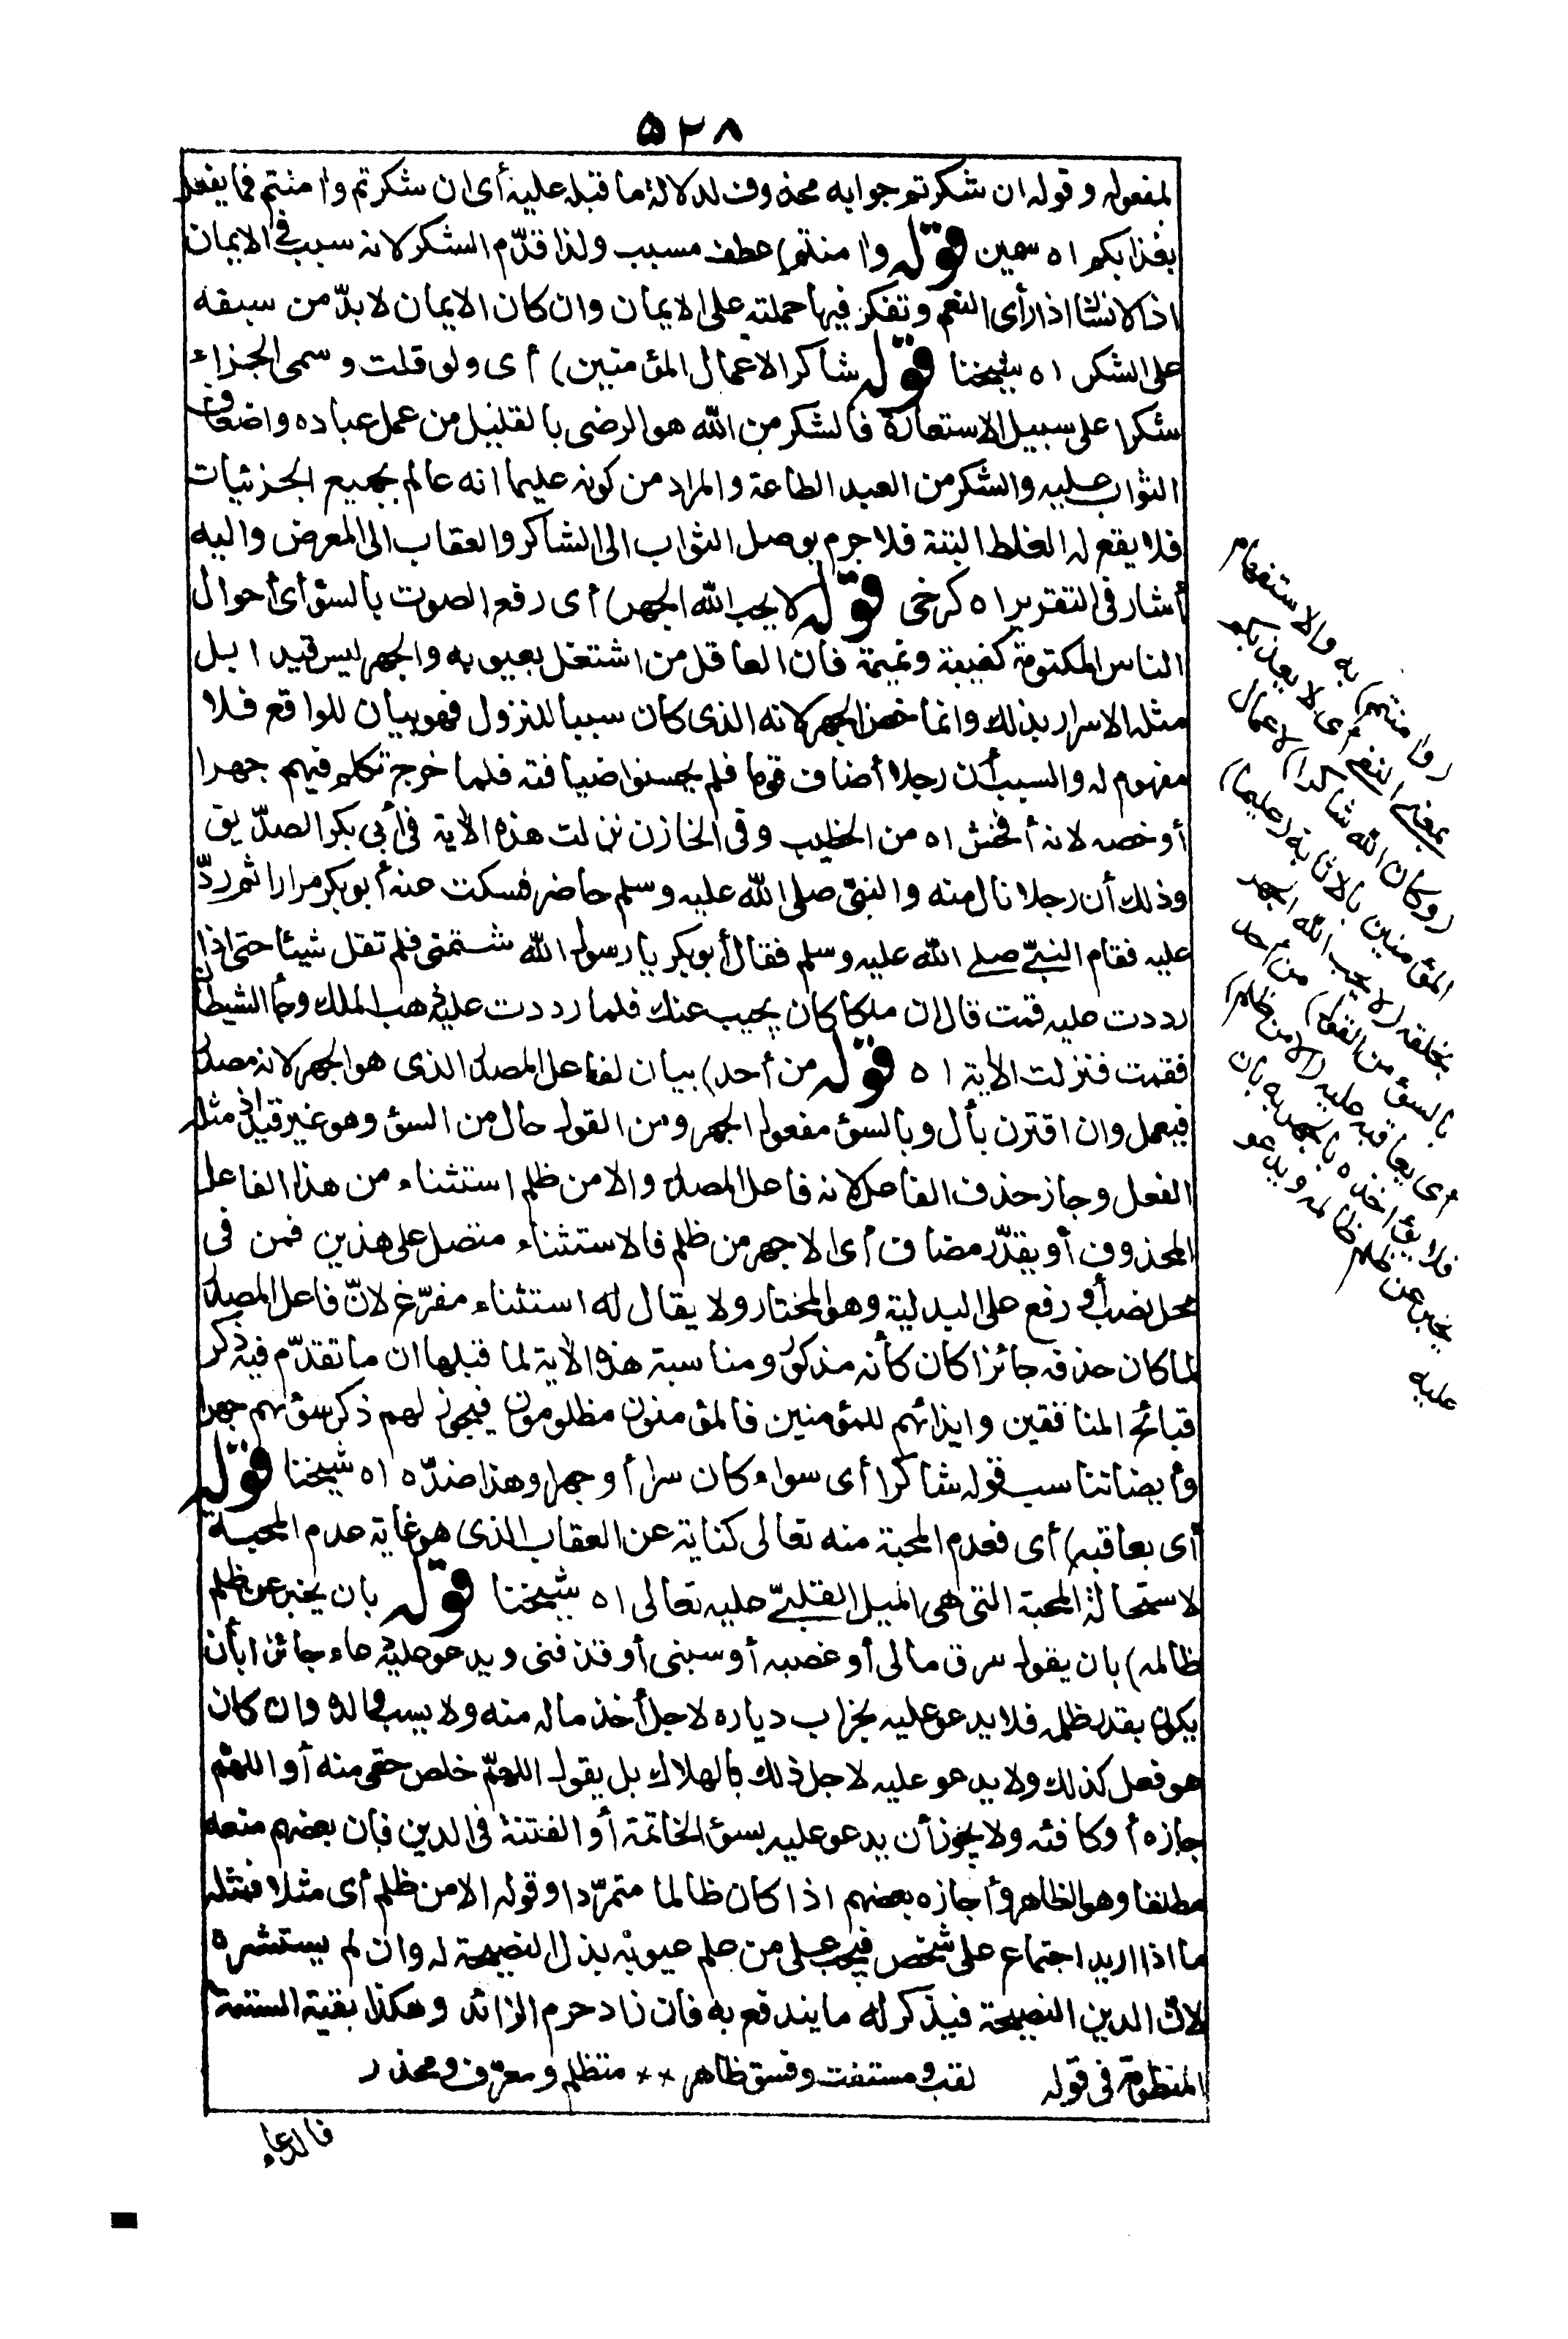 ٥٢٨
لمفعوله وقوله ان شكرتم جوابه محذوف لدلالة ما قبله عليه أى ان شكرتم وا منتم فما يفعل
بعذابكم اه سمين قوله وا منتم) عطف مسبب ولذا قدّم الشكر لانه سبب فى الايمان
اذ الانسان اذا رأى النعم وتفكر فيها حملته على الايمان وان كان الايمان لا بدّ من سبقه
على الشكر اه شيخنا قوله شاكرا لاعمال المؤمنين) أى ولو قلت وسمى الجزاء
شكرا على سبيل الاستعارة فالشكر من الله هو الرضى بالقليل من عمل عباده واضعاف
الثواب عليه والشكر من العبد الطاعة والمراد من كونه عليما انه عالم بجميع الجزئيات
فلا يقع له الغلط البتة فلا جرم يوصل الثواب الى الشاكر والعقاب الى المعرض واليه
أشار فى التقرير اه كرخى قوله لا يحب الله الجهر) أى رفع الصوت بالسوء أى أحوال
الناس المكتومة كغيبة ونميمة فان العاقل من اشتغل بعيوبه والجهر ليس قيدا بل
مثله الاسرار بذلك وانما خص الجهر لانه الذى كان سببا للنزول فهو بيان للواقع فلا
مفهوم له والسبب أن رجلا أضاف قوما فلم يحسنوا ضيافته فلما خرج تكلم فيهم جهرا
أو خصه لانه أفحش اه من الخطيب وفى الخازن نزلت هذه الآية فى أبى بكر الصدّيق
وذلك أن رجلا نال منه والنبىّ صلى الله عليه وسلم حاضر فسكت عنه أبو بكر مرارا ثم ردّ
عليه فقام النبىّ صلى الله عليه وسلم فقال أبو بكر يا رسول الله شتمنى فلم تقل شيئا حتى اذا
رددت عليه قمت قال ان ملكا كان يجيب عنك فلما رددت عليه ذهب الملك وجاء الشيطان
فقمت فنزلت الآية اه قوله من أحد) بيان لفاعل المصدر الذى هو الجهر لانه مصدر
فيعمل وان اقترن بأل وبالسوء مفعول الجهر ومن القول حال من السوء وهو غير قيد اذ مثله
الفعل وجاز حذف الفاعل لانه فاعل المصدر والا من ظلم استثناء من هذا الفاعل
المحذوف أو يقدّر مضاف أى الا جهر من ظلم فالاستثناء متصل على هذين فمن فى
محل نصب أو رفع على البدلية وهو المختار ولا يقال له استثناء مفرّغ لانّ فاعل المصدر
لما كان حذفه جائزا كان كأنه مذكور ومناسبة هذه الآية لما قبلها ان ما تقدّم فيه ذكر
قبائح المنافقين وايذائهم للمؤمنين فالمؤمنون مظلومون فيجوز لهم ذكر سوئهم جهرا
وأيضا تناسب قوله شاكرا أى سواء كان سرا أو جهرا وهذا ضدّه اه شيخنا قوله
أى يعاقبه) أى فعدم المحبة منه تعالى كناية عن العقاب الذى هو غاية عدم المحبة
لاستحالة المحبة التى هى الميل القلبىّ عليه تعالى اه شيخنا قوله بان يخبر عن ظلم
ظالمه) بان يقول سرق مالى أو غصبه أو سبنى أو قذفنى ويدعو عليه دعاء جائزا بأن
يكون بقدر ظلمه فلا يدعو عليه بخراب دياره لاجل أخذ ماله منه ولا يسب والده وان كان
هو فعل كذلك ولا يدعو عليه لاجل ذلك بالهلاك بل يقول اللهمّ خلص حقى منه أو اللهم
جازه أو كافئه ولا يجوز أن يدعو عليه بسوء الخاتمة أو الفتنة فى الدين فان بعضهم منعه
مطلقا وهو الظاهر وأجازه بعضهم اذا كان ظالما متمرّدا وقوله الا من ظلم أى مثلا فمثله
ما اذا اريد اجتماع على شخص فيجب على من علم عيوبه بذل النصيحة له وان لم يستشره
لان الدين النصيحة فيذكر له ما يندفع به فان زاد حرم الزائد وهكذا بقية الستة
المنظومة فى قوله لقب ومستفت وفسق ظاهر ×× متظلم ومعرّف ومحذر
فالدعاء
(وا منتم) به والاستفهام
بمعنى النفى أى لا يعذبكم
(وكان الله شاكرا) لاعمال
المؤمنين بالاثابة (عليما)
بخلقه (لا يحب الله الجهر
بالسوء من القول) من أحد
أى يعاقبه عليه (الا من ظلم)
فلا يؤاخذه بالجهر به بان
يخبر عن ظلم ظالمه ويدعو
عليه